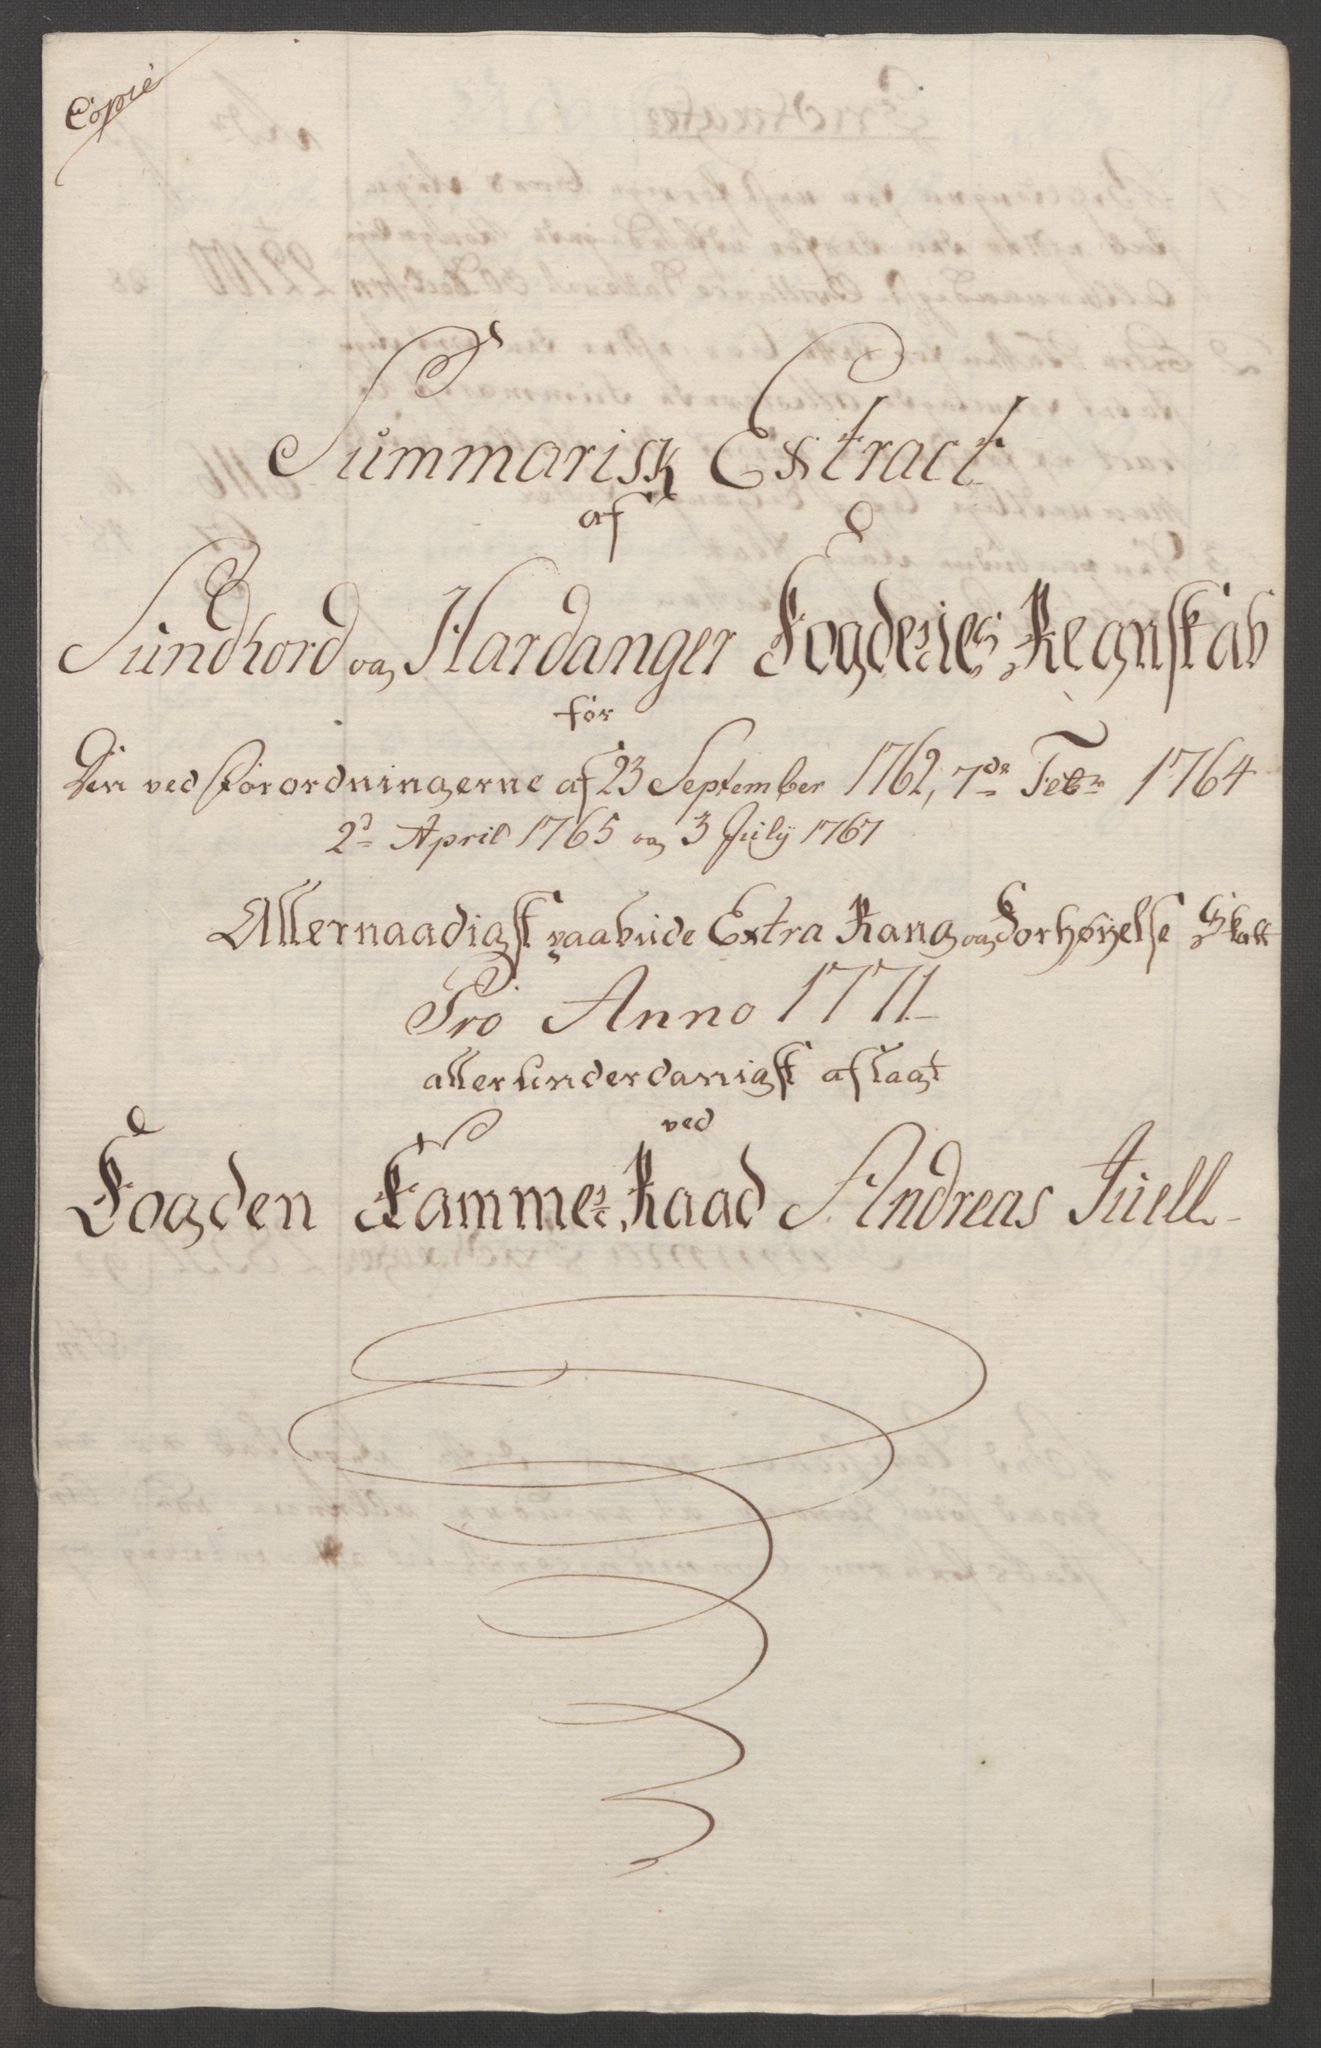 Copie
Summarisk Extract
af
Sundhord og Hardanger Fogderies Regnskab
for
Den ved Forordningerne af 23 September 1762, 7de Febr 1764
2d April 1765 og 3 July 1767
Allernaadigst paabude Extra Rang og Forhøyelse Skatt
Pro Anno 1771
allerunderdanigst aflagt
ved
Fogden Kammer Raad Andreas Juell